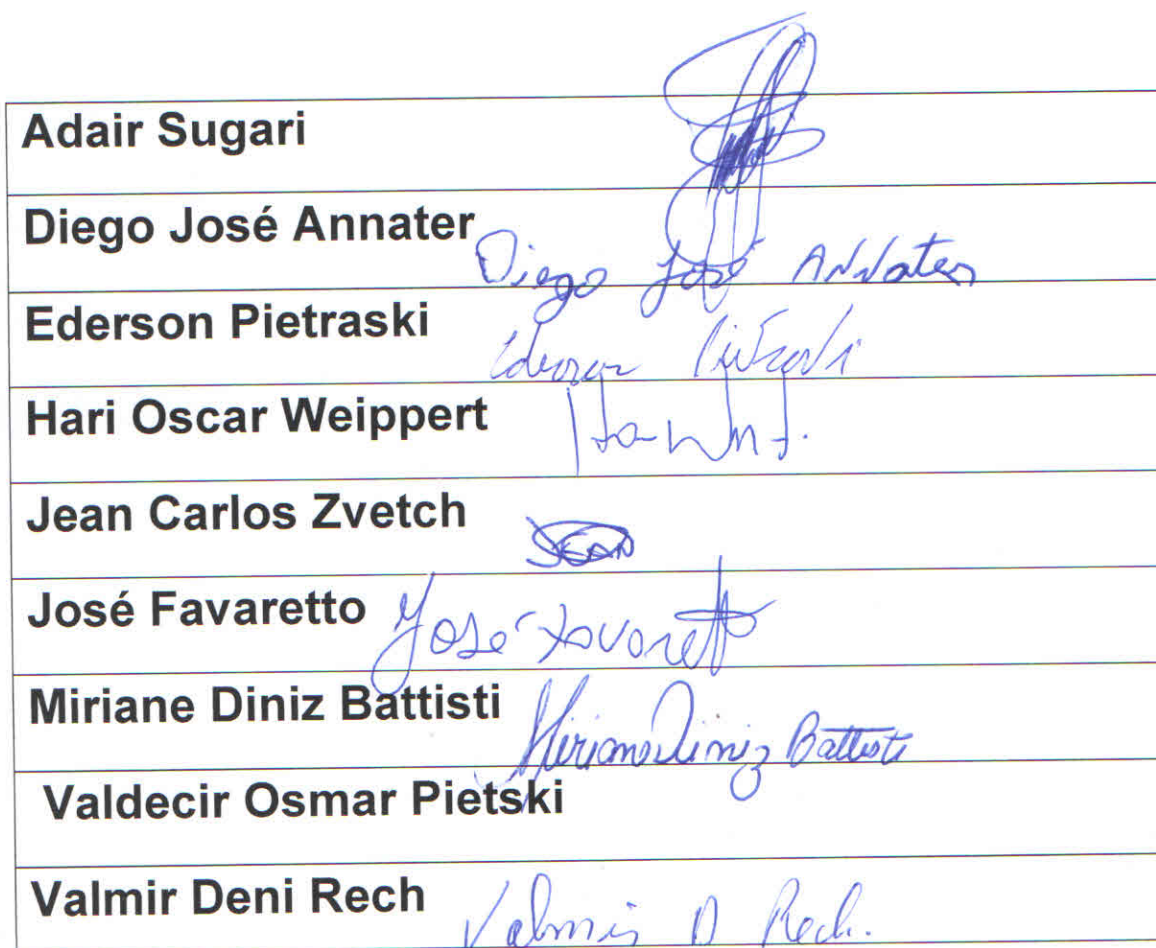 Adair Sugari
Diego José Annater Diego José Annater
Ederson Pietraski
Hari Oscar Weippert
Jean Carlos Zvetch JEAN
José Favaretto José Favaretto
Miriane Diniz Battisti Miriane Diniz Battisti
Valdecir Osmar Pietski
Valmir Deni Rech Valmir D Rech.